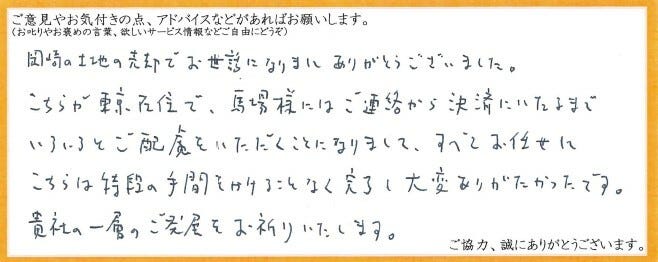 ご意見やお気付きの点、アドバイスなどがあればお願いします。
(お叱りやお褒めの言葉、欲しいサービス情報などご自由にどうぞ)
岡崎の土地の売却でお世話になりまし ありがとうございました。
こちらが東京在住で、馬場様にはご連絡から決済にいたるまで
いろいろとご配慮をいただくことになりまして、すべてお任せに
こちらは特段の手間をかけることなく完了し大変ありがたかったです。
貴社の一層のご発展をお祈りいたします。
ご協力、誠にありがとうございます。